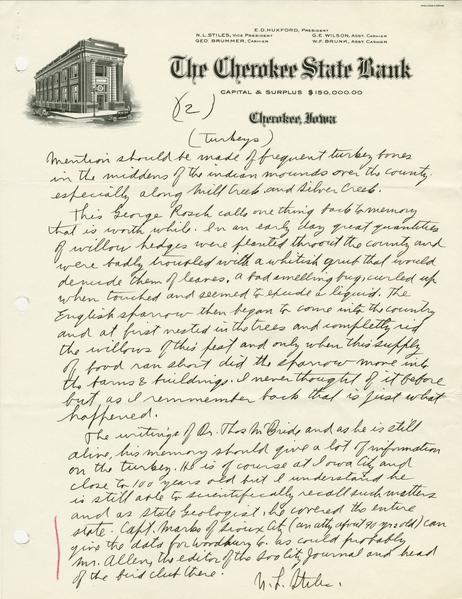 E.D. HUXFORD, PRESIDENT
N.L. STILES, VICE PRESIDENT G.E. WILSON, ASST. CASHIER
GEO. BRUMMER, CASHIER W.F. BRUNK, ASST CASHIER
The Cherokee State Bank
CAPITAL & SURPLUS $150,000.00
Cherokee, Iowa
(2)
(Turkeys)
Mention should be made of frequent turkey bones
in the middens of the indian mounds over the county
especially along Mill Creek and Silver Creek.
This George Rosch calls one thing back to memory
that is worth while. In an early day great quantities
of willow hedges were planted throut the county and
were badly troubled with a whitish grub that would
denude them of leaves, a bad smelling bug, curled up
when touched and seemed to exude a liquid. The
English sparrow then began to come into the country
and at first nested in the trees and completly rid
the willows of this pest and only when this supply
of food ran short did the sparrow move into
the barns & buildings. I never thought of it before
but as I remmember back that is just what
happened.
The writings of Dr. Thos McBride and as he is still
alive, his memory should give a lot of information
on the turkey. He is of course at Iowa City and
close to 100 years old but I understand he
is still able to scientifically recall such matters
and as state Geologist, he covered the entire
state. Capt. Marks of Sioux City (an atty about 90 yrs old) can
give the data for Woodbury Co. as could probably
Mr. Allen, the editor of the Soo City Journal and head
of the bird club there.
N. L. Stiles.